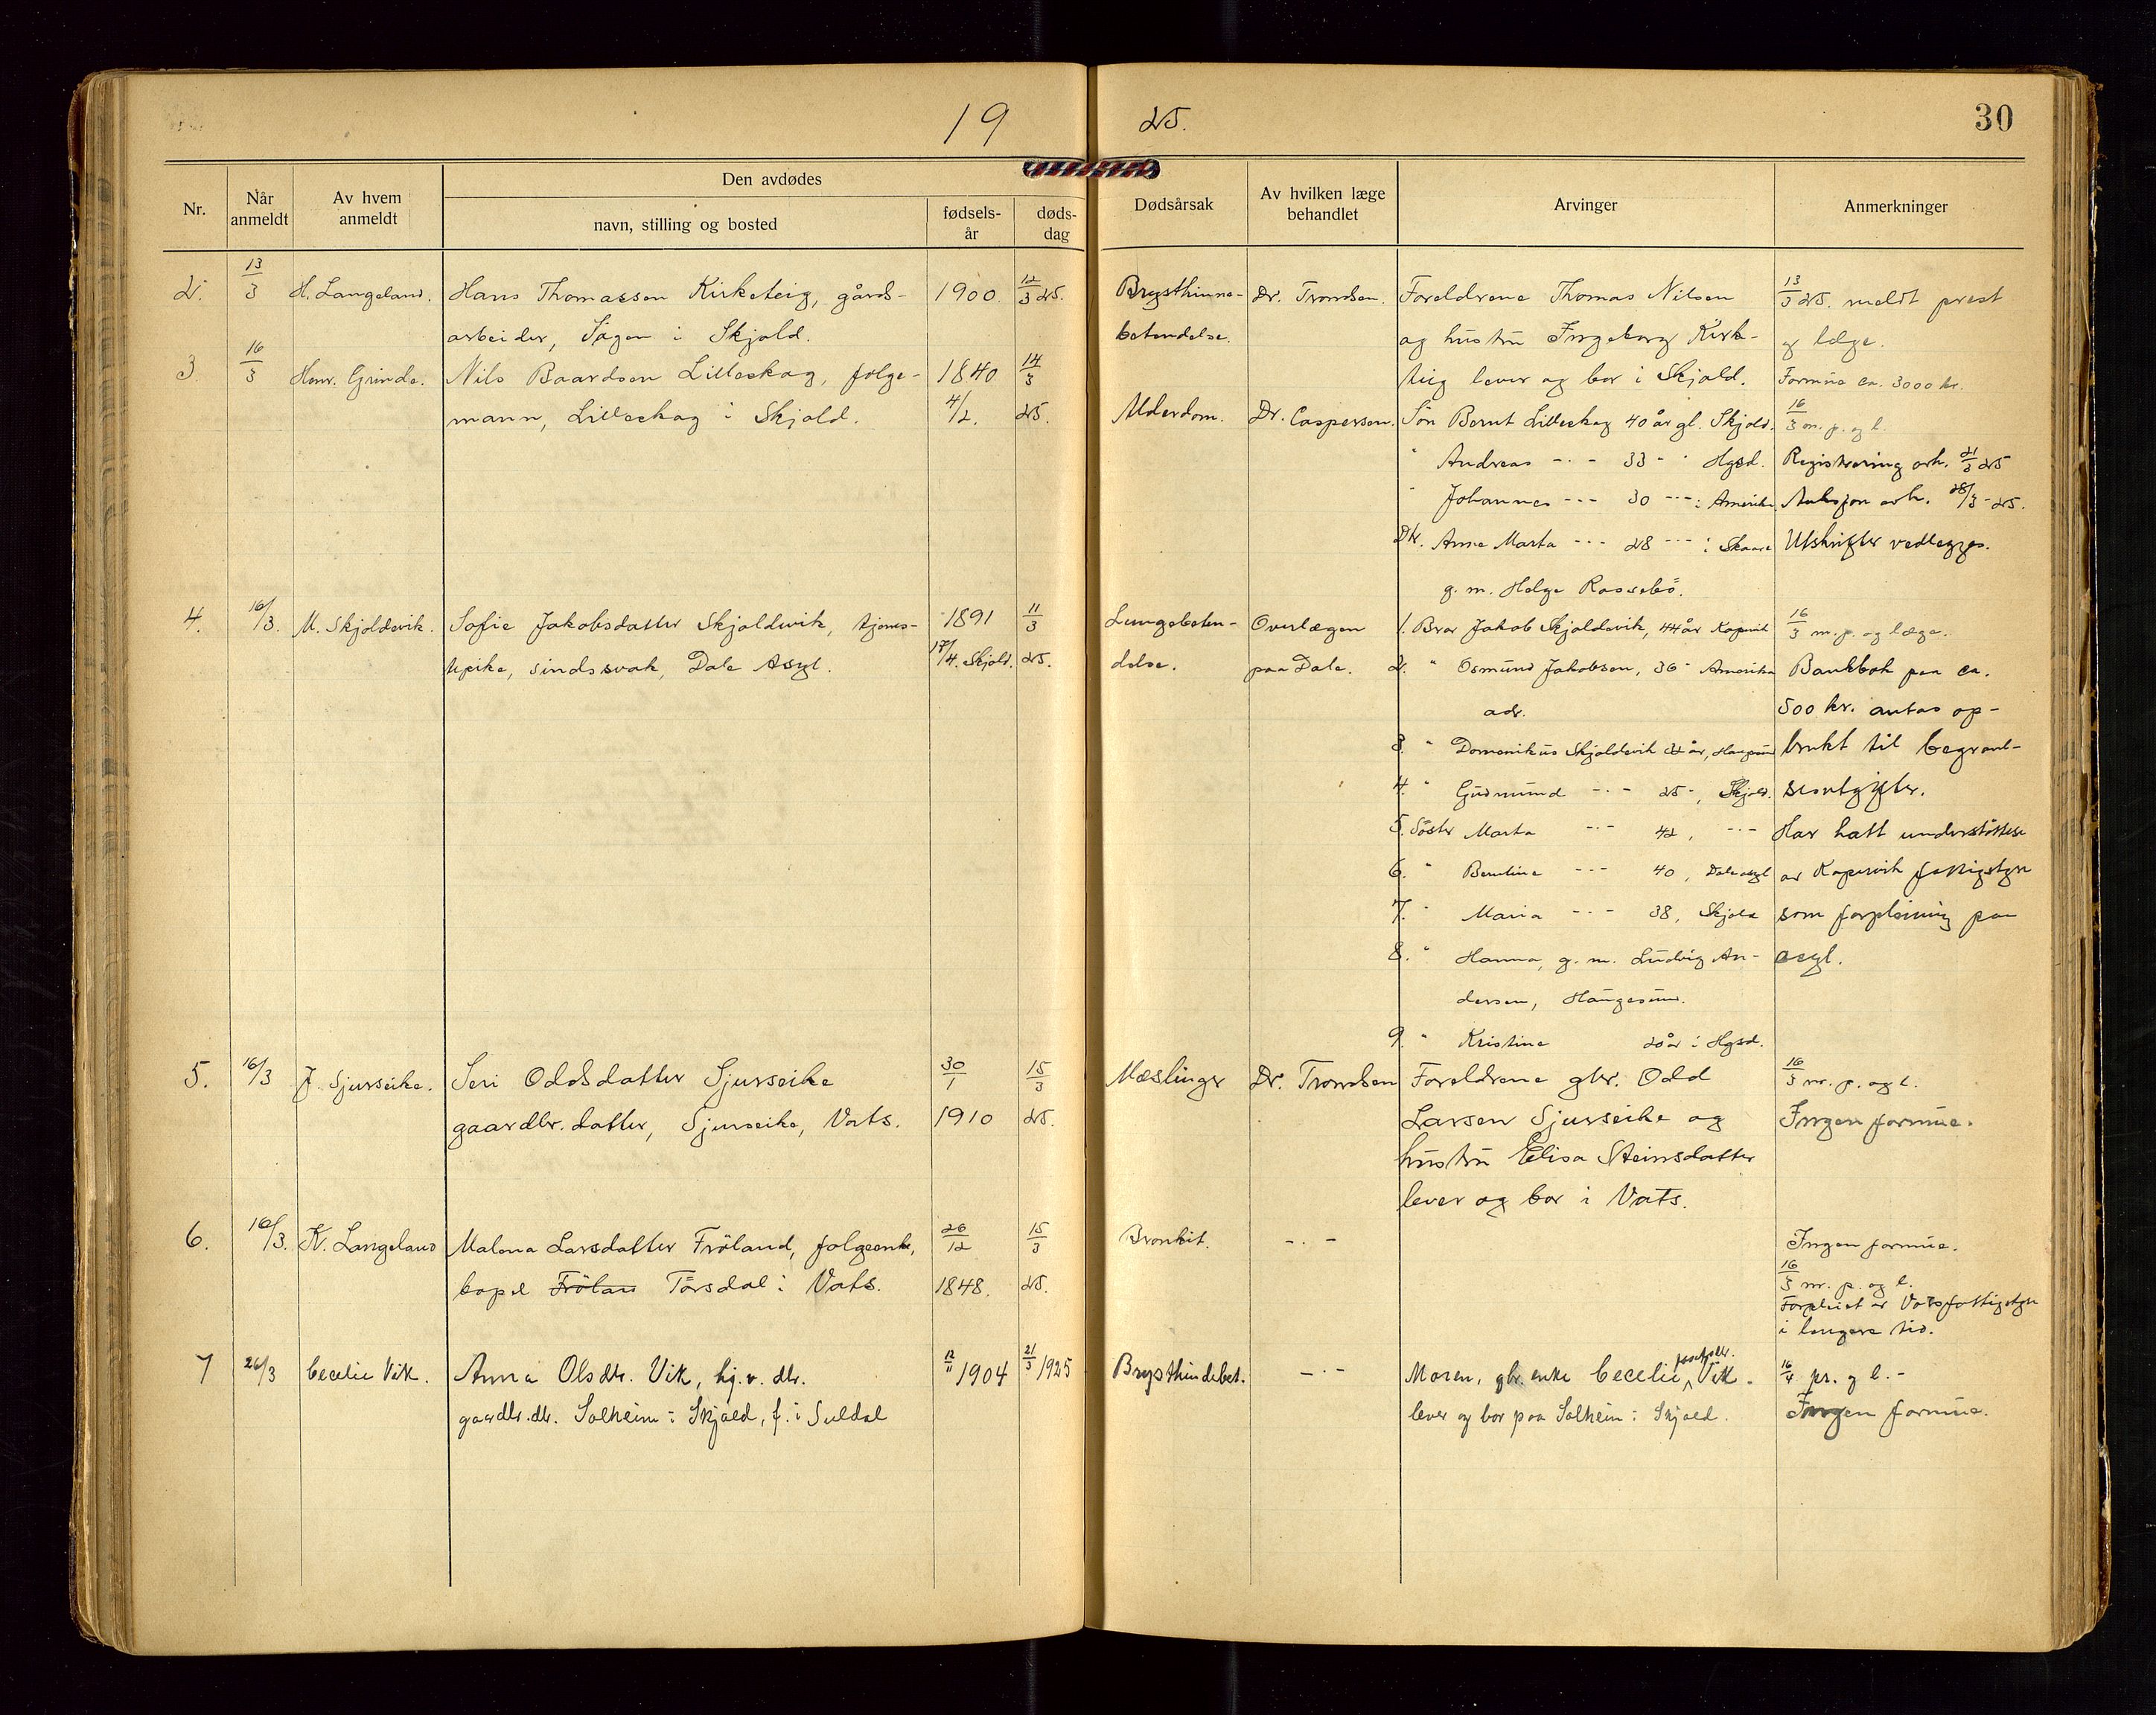 19 25.
30
Nr.
Når anmeldt
Av hvem anmeldt
Den avdødes
navn, stilling og bosted
fødsels-år
døds-dag
Dødsårsak
Av hvilken læge behandlet
Arvinger
Anmerkninger
2. 13/3 H. Langeland. Hans Thomassen Kirketeig, gårds- 1900. 12/3 25. Brysthinne- Dr. Tromsen. Foreldrene Thomas Nilsen 13/3 25. meldt prest
arbeider, Sågen i Skjold. betendelse. og hustru Ingeborg Kirke- og læge.
3. 16/3 Henr. Grinde. Nils Baardsen Lilleskog, følge- 1840 14/3 teig lever og bor i Skjold. Formue ca. 3000 kr.
mann, Lilleskog i Skjold. 4/2. 25. Alderdom. Dr. Caspersen. Søn Bernt Lilleskog 40 år gl. Skjold. 16/3 m. p. og l.
" Andreas -.- 33 - " Hgsd. Registrering avh. 21/3 25
" Johannes --- 30 ---: Amerika. Auksjon avh. 28/3-25.
Dtr. Anne Marta --- 28 --- i Skaare Utskrifter vedlegges.
g. m. Helge Rossebø.
4. 16/3. M. Skjoldevik. Sofie Jakobsdatter Skjoldevik, tjenes- 1891 11/3 Lungebeten- Overlægen 1. Bror Jakob Skjoldevik, 44 år Kopervik 16/3 m. p. og læge.
tepike, sindssvak, Dale Asyl. 17/4. Skjold. 25. delse. paa Dale. 2. " Osmund Jakobsen, 36 - Amerika Bankbok paa ca.
adr. 500 kr. antas op-
3. " Domenikus Skjoldevik år, Haugesund brukt til begravel-
4. " Gudmund -.- 25 -, Skjold. sesutgifter.
5. Søster Marta -.- 42, -.- Har hatt understøttese
6. " Berntine -.- 40, Dale asyl av Kopervik fattigstyre
7. " Maria -.- 38, Skjold som forpleining paa
8. " Hanna, g. m. Ludvig An- asyl.
dersen, Haugesund.
9. " Kristine 20 år i Hgsd.
5. 16/3 J. Sjurseike. Seri Oddsdatter Sjurseike 30/1 15/3 Mæslinger Dr. Tromsen Foreldrene gbr. Odd 16/3 m. p. og l.
gaardbr. datter, Sjurseike, Vats. 1910 25. Larsen Sjurseike og Ingen formue.
hustru Elisa Steinsdatter
lever og bor i Vats.
6. 16/3. K. Langeland Malena Larsdatter Frøland, følgeenke, 26/12 15/3 Bronkit. -.- Ingen formue.
bopel Frølan Tørsdal i Vats. 1848. 25. 16/3 m. p. og l.
Forpleiet av Vats fattigstyre
i lengere tid.
7 26/3 Cecelie Vik. Anna Olsdtr. Vik, hj. v. dtr. 12/11 1904 21/3 1925 Brysthindebet. -.- Moren, gbr. enke Cecelie Vik. 16/4 pr. og l. -
gaardbr. dtr. Solheim i Skjold, f. i Suldal lever og bor paa Solheim i Skjold. Ingen formue.